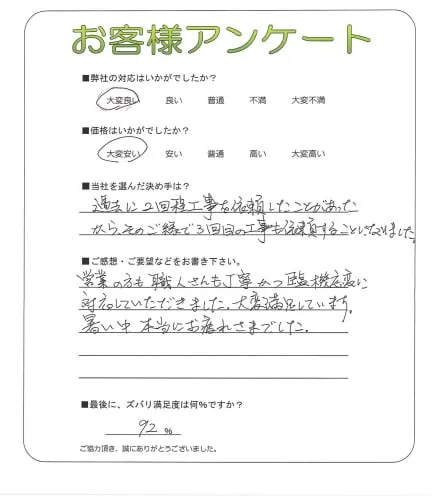 お客様アンケート
■弊社の対応はいかがでしたか？
大変良い 良い 普通 不満 大変不満
■価格はいかがでしたか？
大変安い 安い 普通 高い 大変高い
■当社を選んだ決め手は？
過去に2回程工事を依頼したことがあった
から、そのご縁で3回目の工事も依頼することにいたしました。
■ご感想・ご要望などをお書き下さい。
営業の方も職人さんも丁寧かつ臨機応変に
対応していただきました。大変満足しています。
暑い中本当にお疲れさまでした。
■最後に、ズバリ満足度は何％ですか？
92 %
ご協力頂き、誠にありがとうございました。